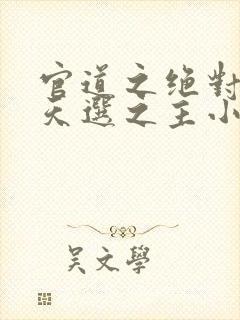 官道之绝對
天選之主小
吴文學